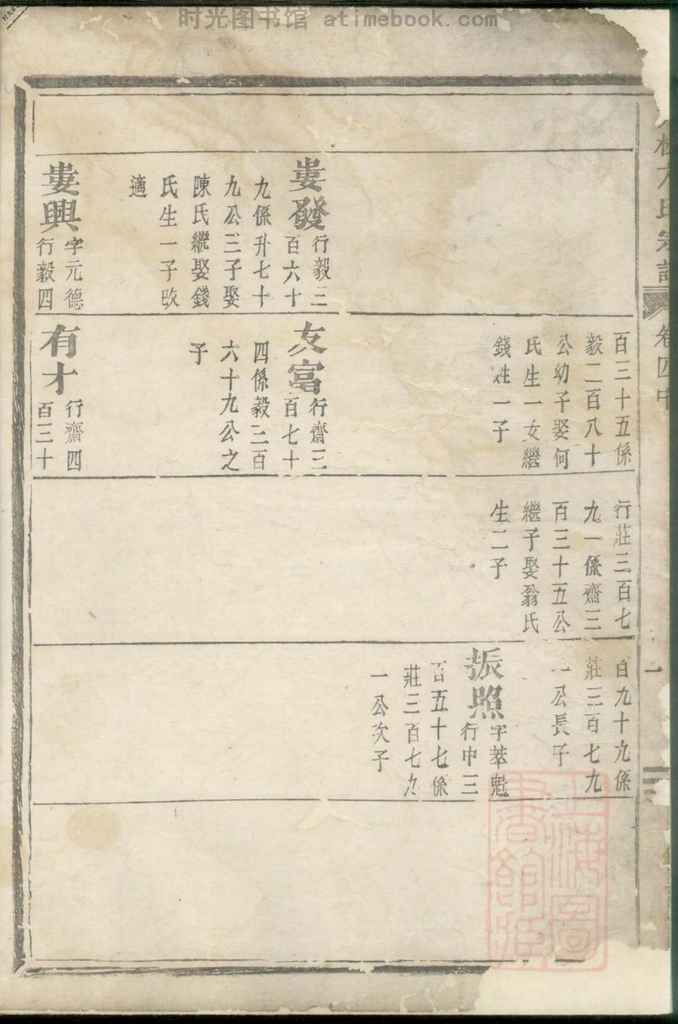 时光图书馆 atimebook.com
氏宗譜
卷四中
婁發
行毅三
百六十
九係升七十
九公三子娶
陳氏繼娶錢
氏生一子改
適
婁興
字元德
行毅四
百三十五係
毅二百八十
公幼子娶何
氏生一女繼
錢姓一子
友富
行齋三
百七十
四係毅三百
六十九公之
子
有才
行齋四
百三十
行莊三百七
九一係齋三
百三十五公
繼子娶翁氏
生二子
百九十九係
莊三百七九
一公長子
振照
字萃魁
行中三
百五十七係
莊三百七九
一公次子